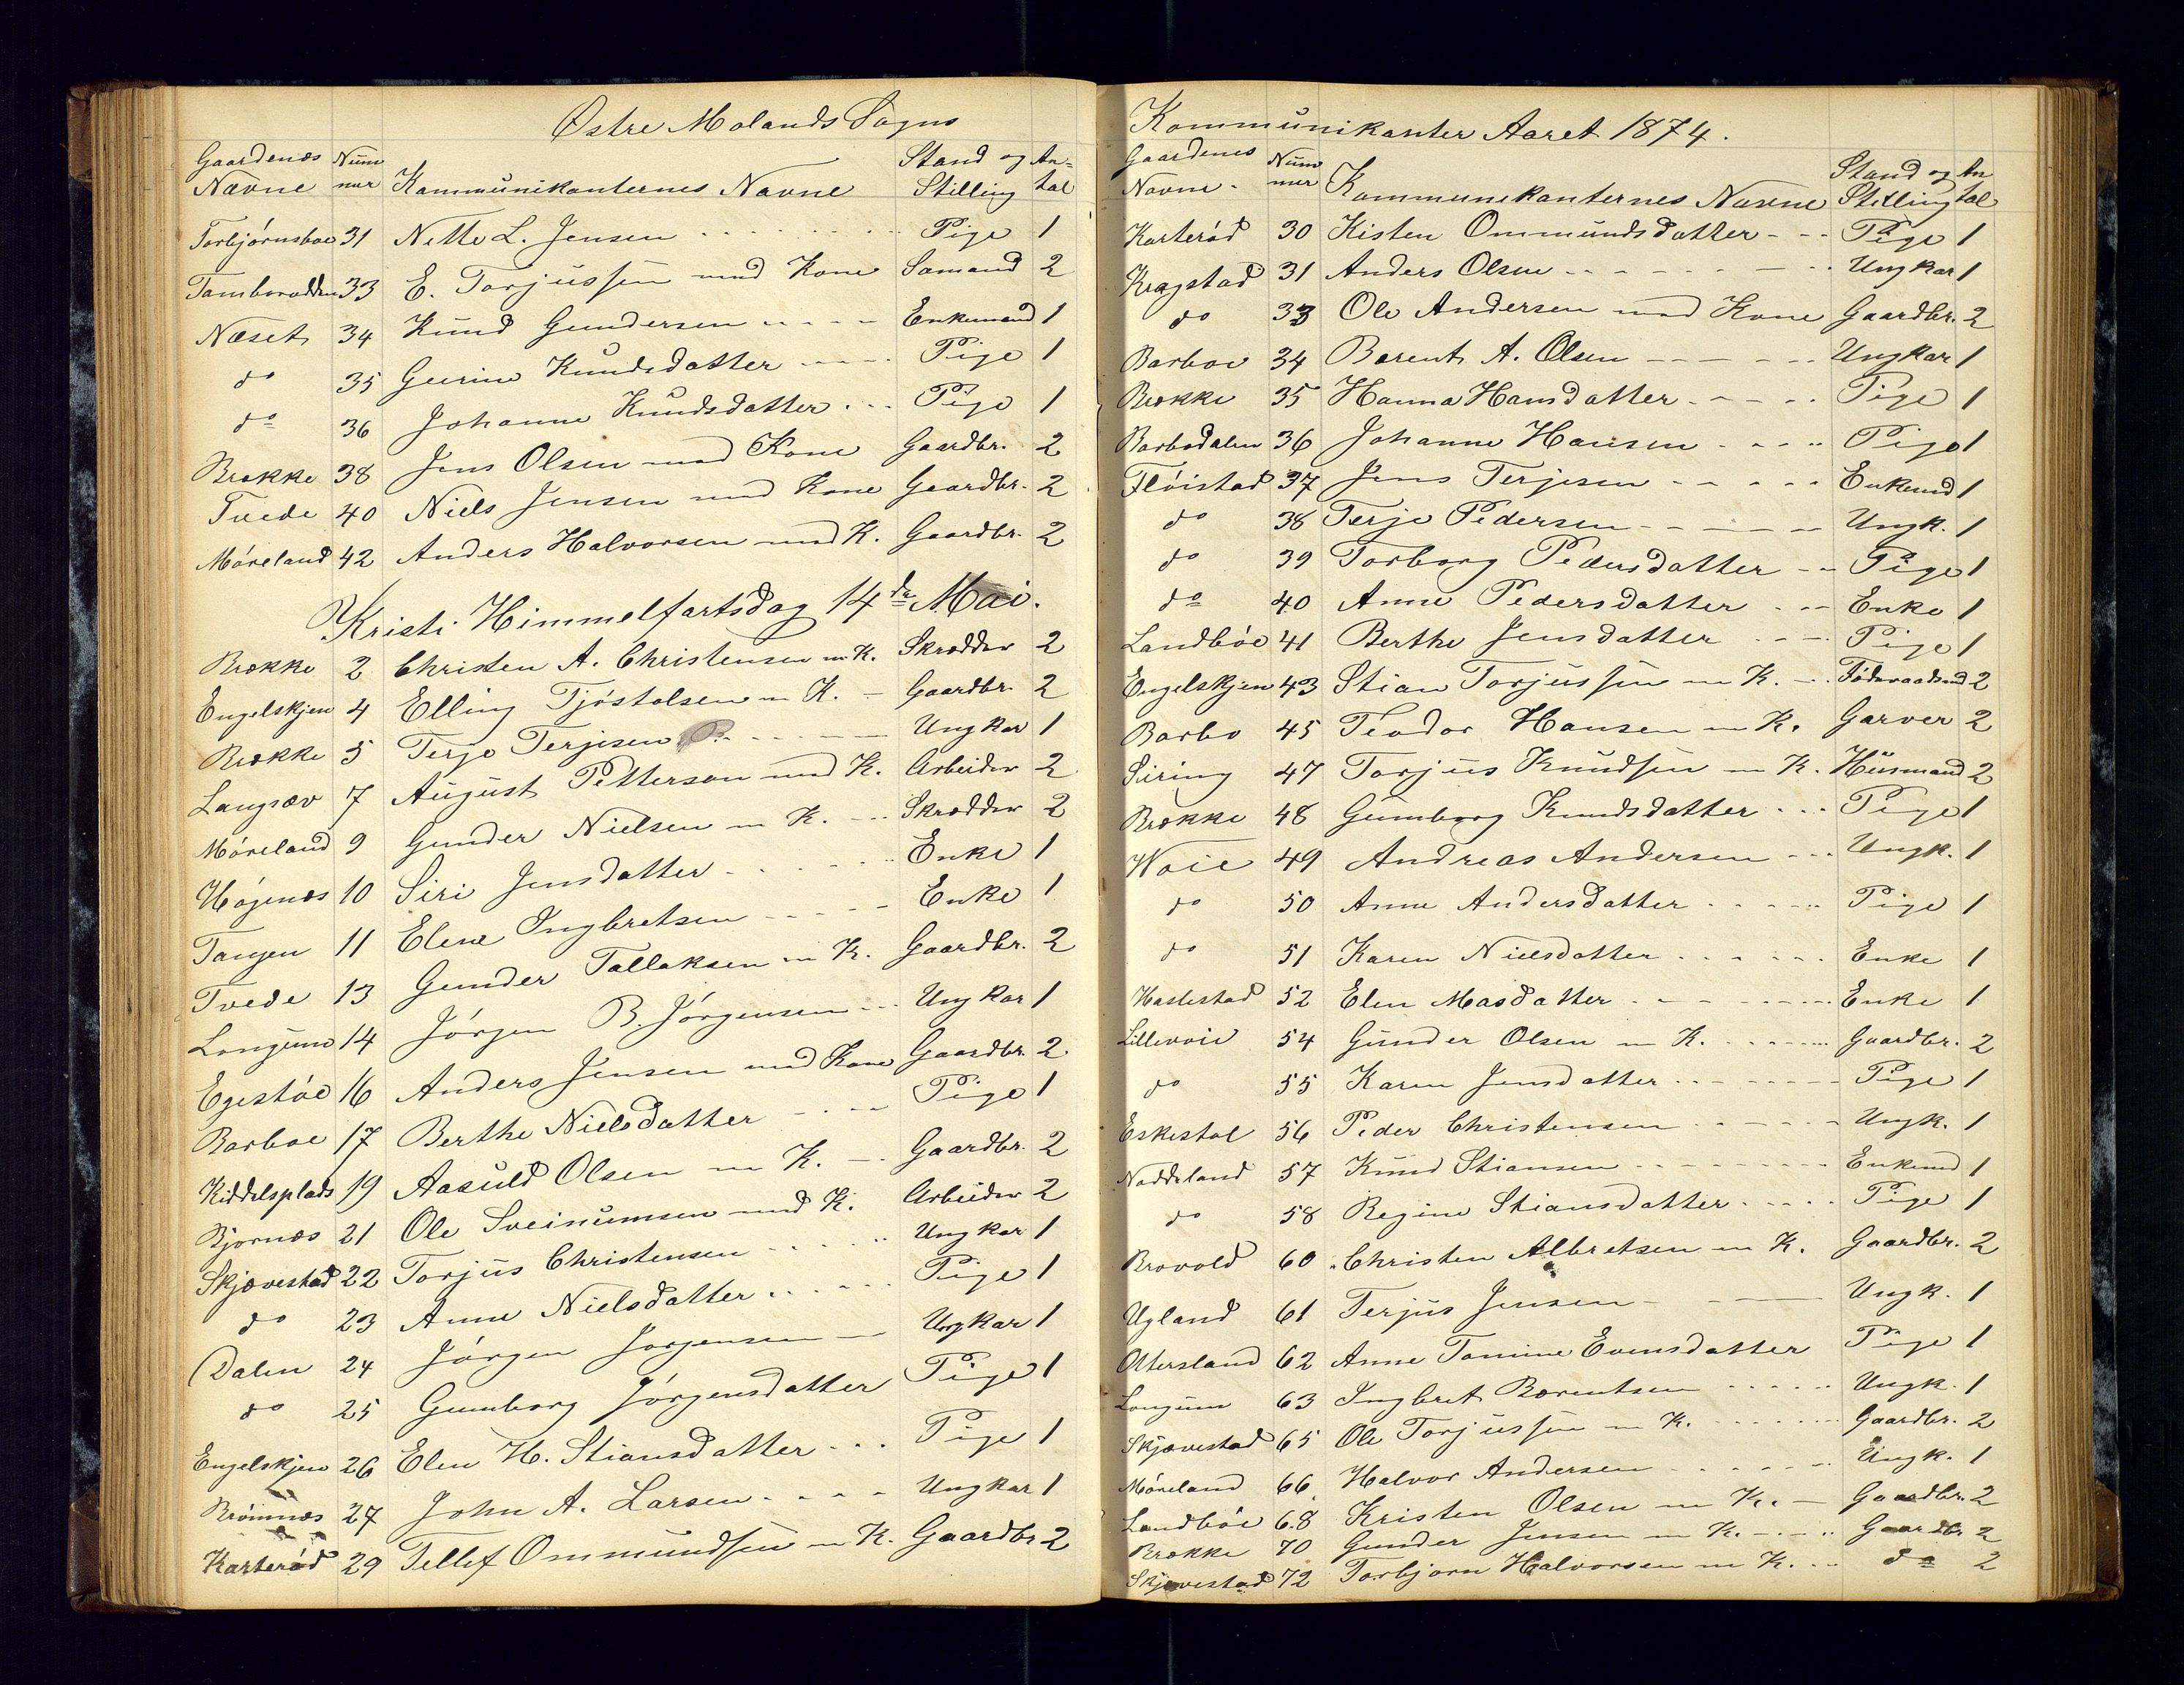 Østre Molands Sogns
Gaardenæs Num Stand og An=
Navne mer Kommunikanternes Navne Stilling tal
Torbjørnsboe 31 Nette L. Jensen Pige 1
33 E. Torjussen med Kone Sømand 2
Næset 34 Knud Gundersen Enkemand 1
do 35 Gurine Knudsdatter Pige 1
do 36 Johanne Knudsdatter Pige 1
Brække 38 Jens Olsen med Kone Gaardbr. 2
Tvede 40 Niels Jensen med Kone Gaardbr. 2
Møreland 42 Anders Halvorsen med K. Gaardbr. 2
Kristi Himmelfartsdag 14de Mai.
Brække 2 Christen A. Christensen m K. Skrædder 2
Engelskjen 4 Elling Tjøstolsen m K. Gaardbr. 2
Brække 5 Terje Terjesen Ungkar 1
Langsæv 7 August Petterson med K. Arbeider 2
Møreland 9 Gunder Nielsen m K. Skrædder 2
Høgenæs 10 Siri Jensdatter Enke 1
Tangen 11 Elene Ingbretsen Enke 1
Tvede 13 Gunder Tallaksen m K. Gaardbr. 2
Longum 14 Jørgen B. Jørgensen Ungkar 1
Egestøe 16 Anders Jensen med Kone Gaardbr. 2
Barboe 17 Berthe Nielsdatter Pige 1
Kiddelsplads 19 Aasuld Olsen m K. Gaardbr. 2
Bjørnæs 21 Ole Sveinumsen med K. Arbeider 2
Skjævestad 22 Torjus Christensen Ungkar 1
do 23 Anne Nielsdatter Pige 1
Dalen 24 Jørgen Jørgensen Ungkar 1
do 25 Gumborg Jørgensdatter Pige 1
Engelskjen 26 Elen H. Stiansdatter Pige 1
Brømnæs 27 John A. Larsen Ungkar 1
Karterød 29 Tellef Ommundsen m K. Gaardbr 2
Kommunikanter Aaret 1874.
Gaardenes Num Stand og An
Navne. mer Kommunekanternes Navne Stilling tal
Karterød 30 Kisten Ommundsdatter Pige 1
Kragstad 31 Anders Olsen Ungkar 1
do 33 Ole Andersen med Kone Gaardbr. 2
Barboe 34 Barent A. Olsen Ungkar 1
Brække 35 Hanna Hansdatter Pige 1
Barbodalen 36 Johanne Hansen Pige 1
Fløistad 37 Jens Terjesen Enkemd 1
do 38 Terje Pedersen Ungk. 1
do 39 Torborg Pedersdatter Pige 1
do 40 Anne Pedersdatter Enke 1
Landbøe 41 Berthe Jensdatter Pige 1
Engelskjen 43 Stian Torjussen m K. Føderaadsmd 2
Barbo 45 Teodor Hansen m K. Garver 2
Siring 47 Torjus Knudsen m K. Husmand 2
Brække 48 Gumborg Knudsdatter Pige 1
Woie 49 Andreas Andersen Ungk. 1
do 50 Anne Andersdatter Pige 1
do 51 Karen Nielsdatter Enke 1
Haslestad 52 Elen Masdatter Enke 1
Lillevoie 54 Gunder Olsen m K. Gaardbr. 2
do 55 Karen Jensdatter Pige 1
Eskestøl 56 Peder Christensen Ungk. 1
Noddeland 57 Knud Stiansen Enkemd 1
do 58 Regine Stiansdatter Pige 1
Brovold 60 Christen Albretsen m K. Gaardbr. 2
Ugland 61 Terjus Jensen Ungk. 1
Ottersland 62 Anne Tomine Evensdatter Pige 1
Longum 63 Ingbret Bærentsen Ungk. 1
Skjævestad 65 Ole Torjussen m K. Gaardbr. 2
Møreland 66 Halvor Andersen Ungk. 1
Landbøe 68 Kristen Olsen m K. Gaardbr. 2
Brække 70 Gunder Jensen m K. Gaardb 2
Skjævestad 72 Torbjørn Halvorsen m K. do 2